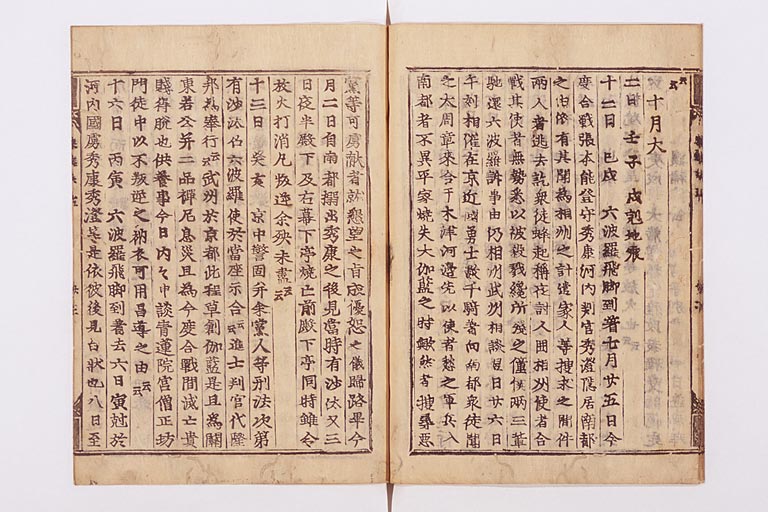 云云
十月大
二日 壬子 戌尅地震
十二日 己戌 六波羅飛脚到著去月廿五日今
度合戰張本能登守秀康河内判官秀澄隱居南都
之由依有其聞為相州之計遣家人等搜求之間件
兩人者逃去訖衆徒蜂起稱夜討人囲相州使者合
戰其使者無勢悉以被殺戮纔所殘之僮僕兩三輩
馳還六波羅訴事由仍相州武州相談翌日廿六日
午刻相催在京近國勇士數千騎者向南都衆徒聞
之太周章來合于木津河邊先以使者愁之軍兵入
南都者不異平家燒失大伽藍之時歟然者搜尋惡
黨等可虜獻者就懇望之旨成優恕之儀歸路畢今
月二日自南都搦出秀康之後見當時有沙汰又三
日夜半殿下及右幕下亭燒亡前殿下亭同時雖令
放火打消凡叛逆余殃未盡云云
十三日 癸亥 京中警固并朱黨人等刑法次第
有沙汰召六波羅使於當座示合云云進士判官代隆
邦為奉行云云武州於京都此程草創伽藍是且為關
東若公并二品禪尼息災且為今度合戰間滅亡貴
賤得脱也供養事今日內々申談青蓮院宮僧正坊
門徒中以不叛逆之納衣可用唱導之由云云
十六日 丙寅 六波羅飛脚到著去六日寅尅於
河内國虜秀康秀澄等是依彼後見白狀也八日至